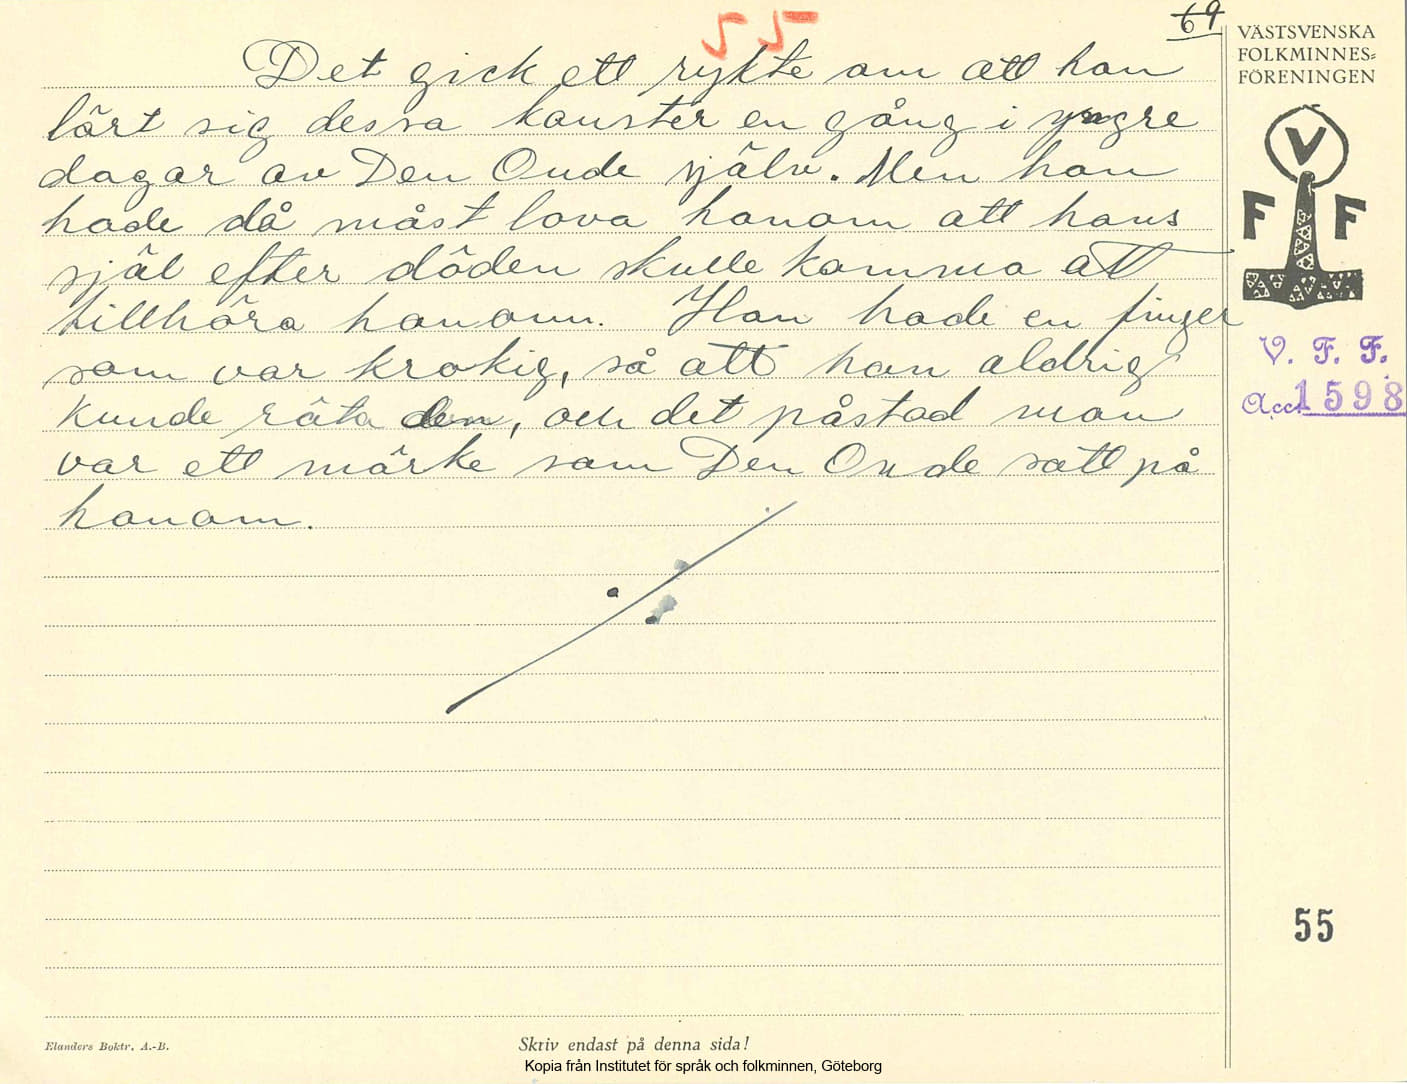 55
69
VÄSTSVENSKA
FOLKMINNES=
FÖRENINGEN
Det gick ett rykte om att han
lärt sig dessa konster en gång i yngre
dagar av Den Onde själv. Men han
hade då måst lova honom att hans
själ efter döden skulle komma att
tillhöra honom. Han hade en finger
som var krokig, så att han aldrig
kunde räta den, och det påstod man
var ett märke som Den Onde satt på
honom.
V
F F
V. F. F.
Acc. 1598
55
Elanders Boktr. A.-B.
Skriv endast på denna sida!
Kopia från Institutet för språk och folkminnen, Göteborg